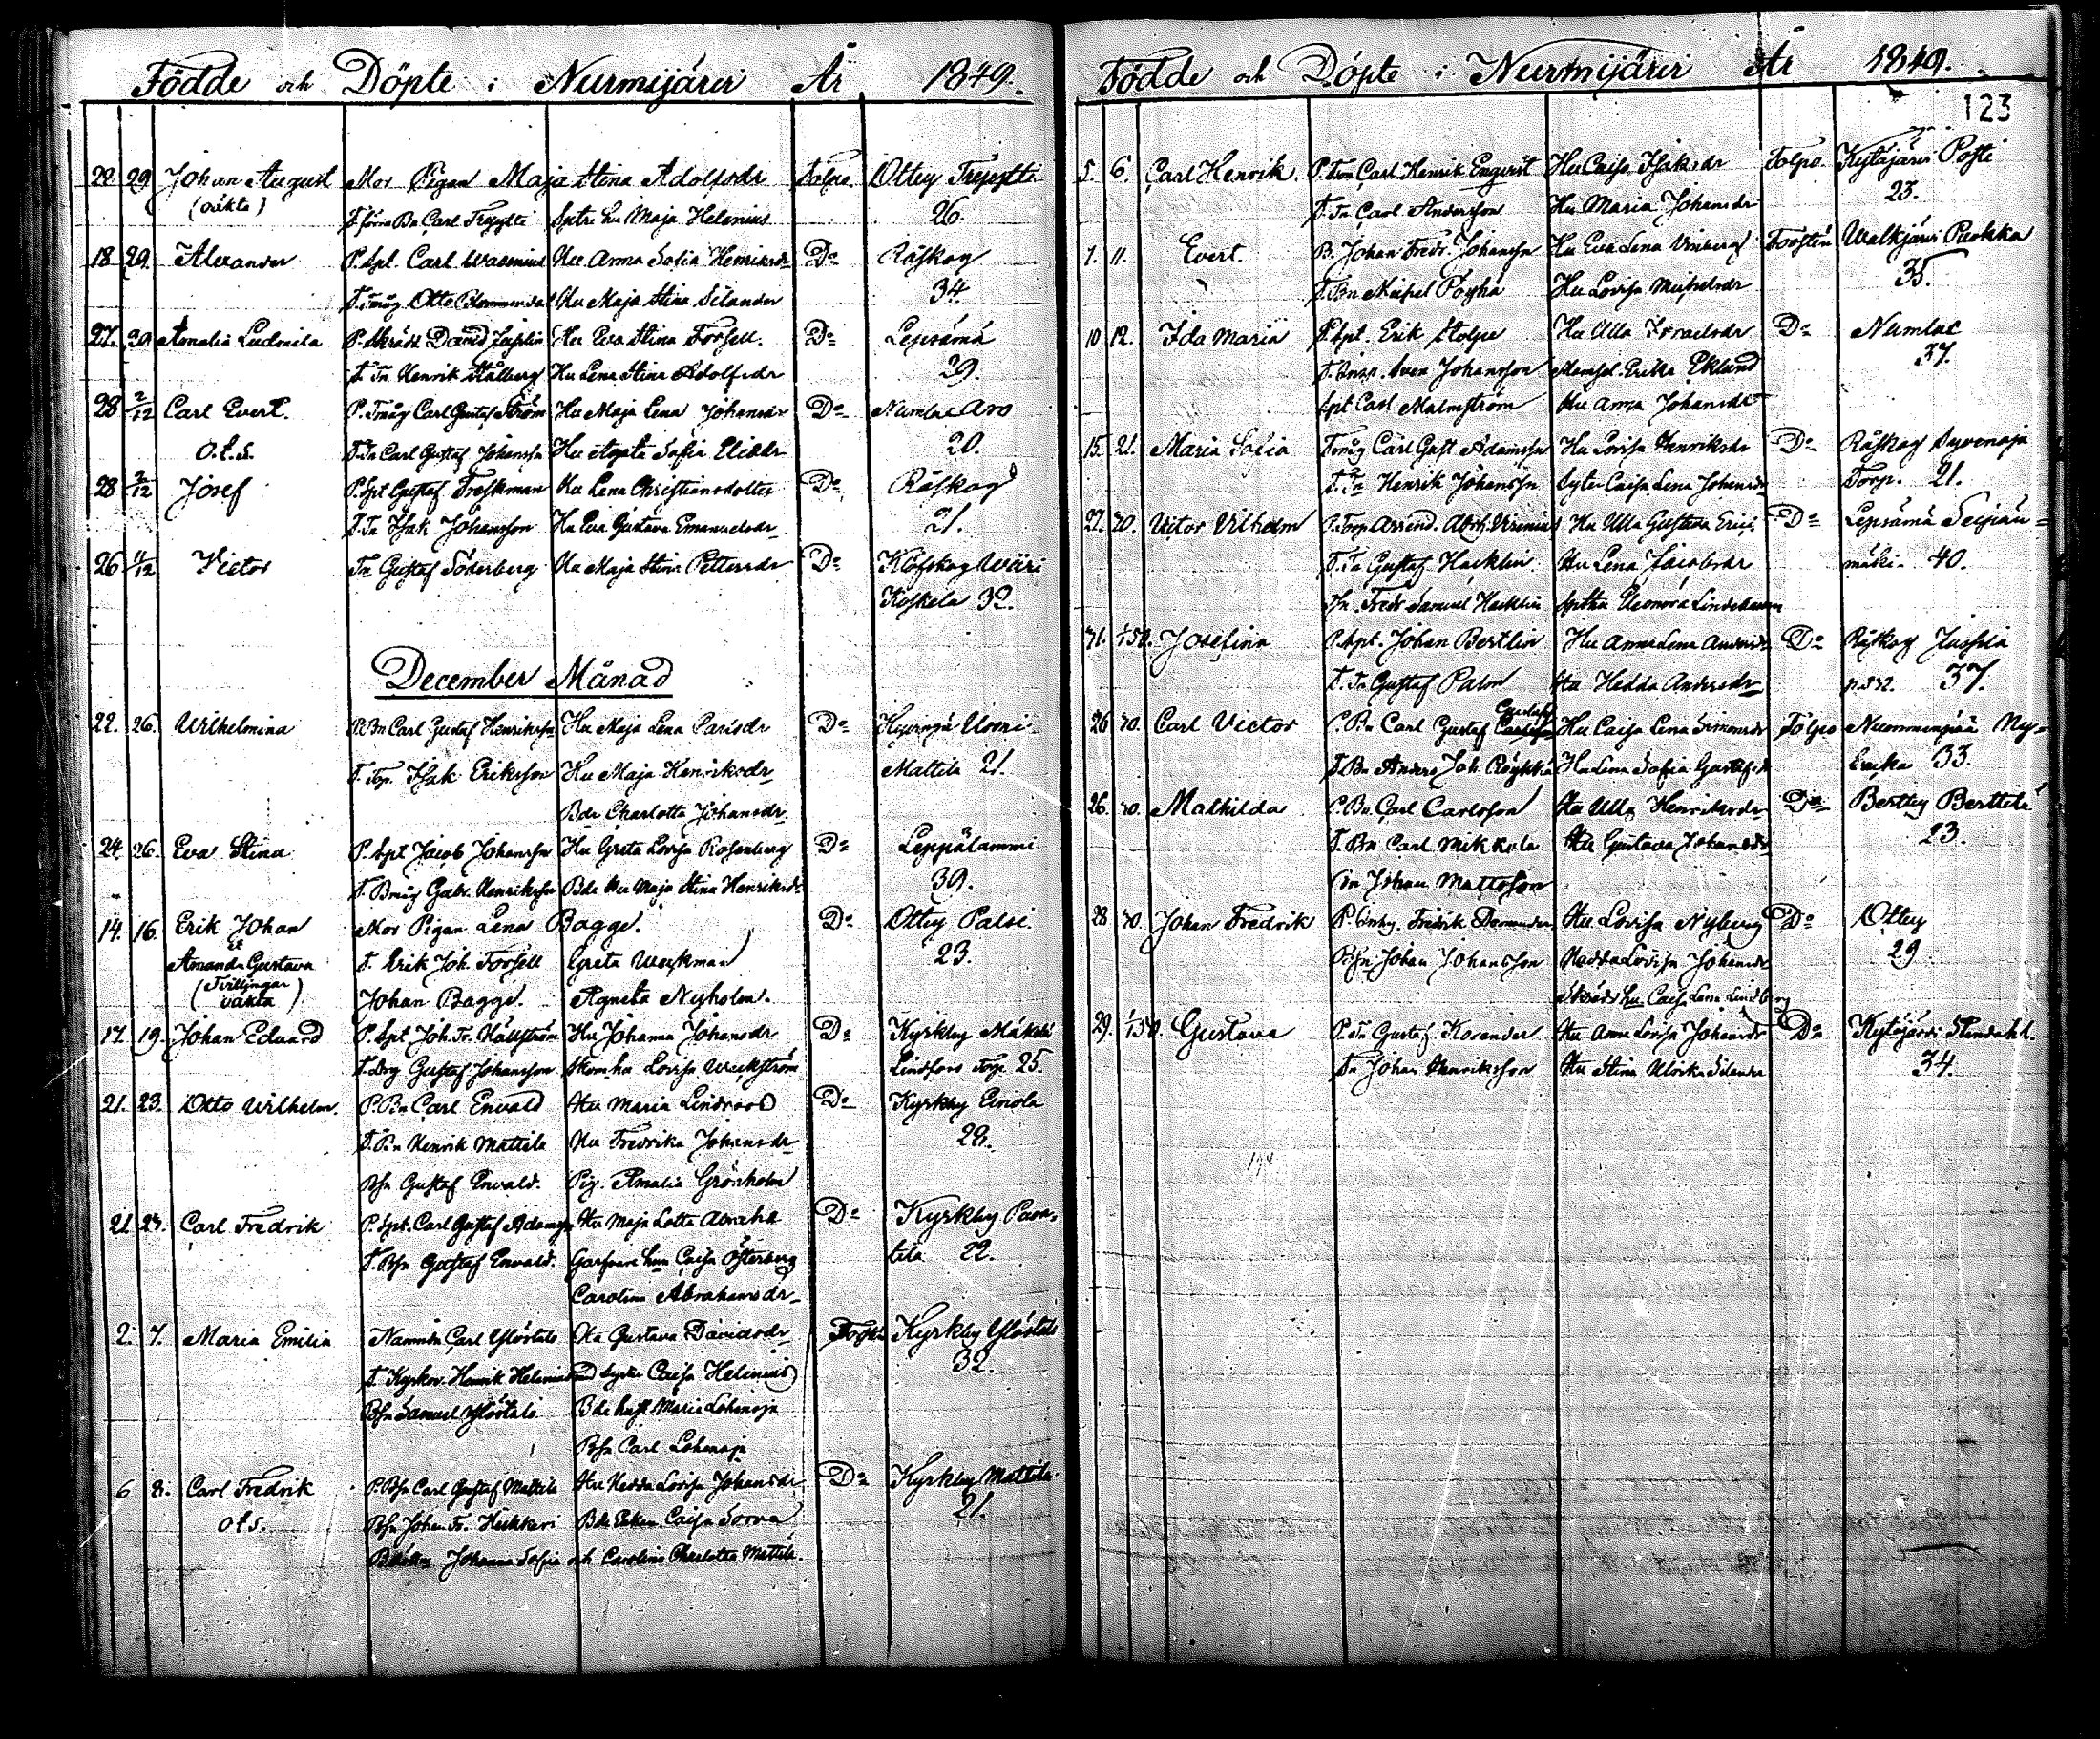 Födde och Döpte i Nurmijärvi År 1849.
29 29 Johan August Mor Pigan Maja Stina Adolfsdr Tolpo. Ottby Trepytti
(oäkta) Carl Trepytti hu Maja Helenius 26.
18 29 Alexander P. Spt. Carl Hu Anna Sofia Henriksdr Do Råskog
Otto Hu Maja Stina Silander 34.
27. 30 Amalia Ludmila P. Skrädd. David Hu Eva Stina Forsell. Do Lepsämä
T. Tn Henrik Stålberg Hu Lena Stina Adolfsdr 29.
28 2/12 Carl Evert. P. Carl Gustaf Ström Hu Maja Lena Johansdr Do Numlax Aro
O.t.S. T. Tn Carl Gustaf Johansson Hu Agata Sofia Eliædr 20.
28 2/12 Josef P. Spt Gustaf Froskman Hu Lena Christiansdotter Do Råskog
T. Tn Isak Johansson Hu Eva Gustava Emanuelsdr 21.
26 11/12 Victor Tn Gustaf Söderberg Hu Maja Stina Pettersdr Do
Koskela 32.
December Månad
22. 26. Wilhelmina P. Bn Carl Gustaf Henriksson Hu Maja Lena Parisdr Do Uomi
T. Isak Eriksson Hu Maja Henriksdr Mattila 21.
Bde Charlotta Johansdr
24. 26. Eva Stina P. Spt Jacob Johansson Hu Greta Lovisa Rosenberg Do Leppälammi
T. Bmåg Gabr. Henriksson Bde Hu Maja Stina Henriksdr 39.
14. 16. Erik Johan Mor Pigan Lena Bagge. Do Ottby Palsi.
et
Amanda Gustava T. Erik Joh. Forsell Greta Weckman 23.
(Tvillingar
oäkta) Johan Bagge. Agneta Nyholm.
17. 19. Johan Eduard P. Spt Joh. Fr. Hällström Hu Johanna Johansdr Do Kyrkby Mäkelä
T. Drg Gustaf Johansson Skom. hu Lovisa Weckström Lindfors Torp 25.
21. 23. Otto Wilhelm. P. Bn Carl Envald Hu Maria Lindroos Do Kyrkby Einola
T. Bn Henrik Mattila Hu Fredrika Johansdr 29.
Bsn Gustaf Envald. Pig. Amalia Grönholm
21 23. Carl Fredrik P. Spt. Carl Gustaf Adamsson Hu Maja Lotta Abrahd Do Kyrkby Pava-
T. Bsn Gustaf Envald. Garfvare hun Caisa Österberg tila 22.
Carolina Abrahamsdr
2. 7. Maria Emilia Nämndm Carl Ylöstalo Hu Gustava Davidsdr Forstén Kyrkby Ylöstalo
T. Kyrkov. Henrik Helenius Syster Caisa Helenius 32.
Bsn Samuel Ylöstalo Bde hust Maria Lohenoja
Bsn Carl Lohenoja
6 8. Carl Fredrik P. Bsn Carl Gustaf Mattila Hu Hedda Lovisa Johansdr Do Kyrkby Mattila.
O.t.S. Bsn Johan Fr. Heikkari Bde Enkan Caisa Sorva 21.
Johanna Sofia och Carolina Charlotta Mattila.
Födde och Döpte i Nurmijärvi År 1849.
123
5. 6. Carl Henrik P. Carl Henrik Enqvist Hu Caisa Isaksdr Tolpo. Kytäjärvi Posti
T. Tn Carl Andersson Hu Maria Johansdr 23.
7. 11. Evert. B. Johan Fredr. Johansson Hu Eva Lena Vinberg Forstén Walkjärvi Puokka
T. Bn Michel Pöyhä Hu Lovisa Michelsdr 35.
10 12. Ida Maria P. Spt. Erik Stolpe Hu Ulla Israelsdr Do Numlax
T. Insp. Sven Johansson Mamsel. Erika Eklund 37.
Spt Carl Malmström Hu Anna Johansdr
15. 21. Maria Sofia Tmåg Carl Gust Adamsson Hu Lovisa Henriksdr Do Råskog Syvenoja
T. Tn Henrik Johansson Syster Caisa Lena Johansdr Torp. 21.
27. 30. Victor Vilhelm P. Torp. Arrend. Abrh. Virenius Hu Ulla Gustava Erici Do Lepsämä
T. Tn Gustaf Hacklin Hu Lena Jacobsdr mäki. 40.
Fredr Samuel Hacklin Eleonora Lindebaum
31. 1/1 50. Josefina P. Spt. Johan Bertlin Hu Anna Lena Andersdr Do Råskog Jussila
T. Tn Gustaf Palon Hu Hedda Andersdr 37.
26 30. Carl Victor P. Bn Carl Gustaf Hu Caisa Lena Simonsdr Tolpo Nummenpää My-
T. Bn Anders Joh. Röykkä Hu Lena Sofia Gustafsdr 33.
26. 30. Mathilda P. Bn Carl Carlsson Hu Ulla Henriksdr Do Bertby Berttilä
T. Bn Carl Mikkola Hu Gustava Johansdr 23.
Johan Mattsson
28 30. Johan Fredrik P. Fredrik Hu Lovisa Nyberg Do Ottby
Bsn Johan Johansson Hedda Lovisa Johansdr 29
Skrädd. hu Caisa Lena Lindberg
29. 1/1 50. Gustava P. Tn Gustaf Korander Hu Anna Lovisa Johansdr Do Kytäjärvi Stendahl.
Tn Johan Henriksson Hu Stina Ulrika Silander 34.